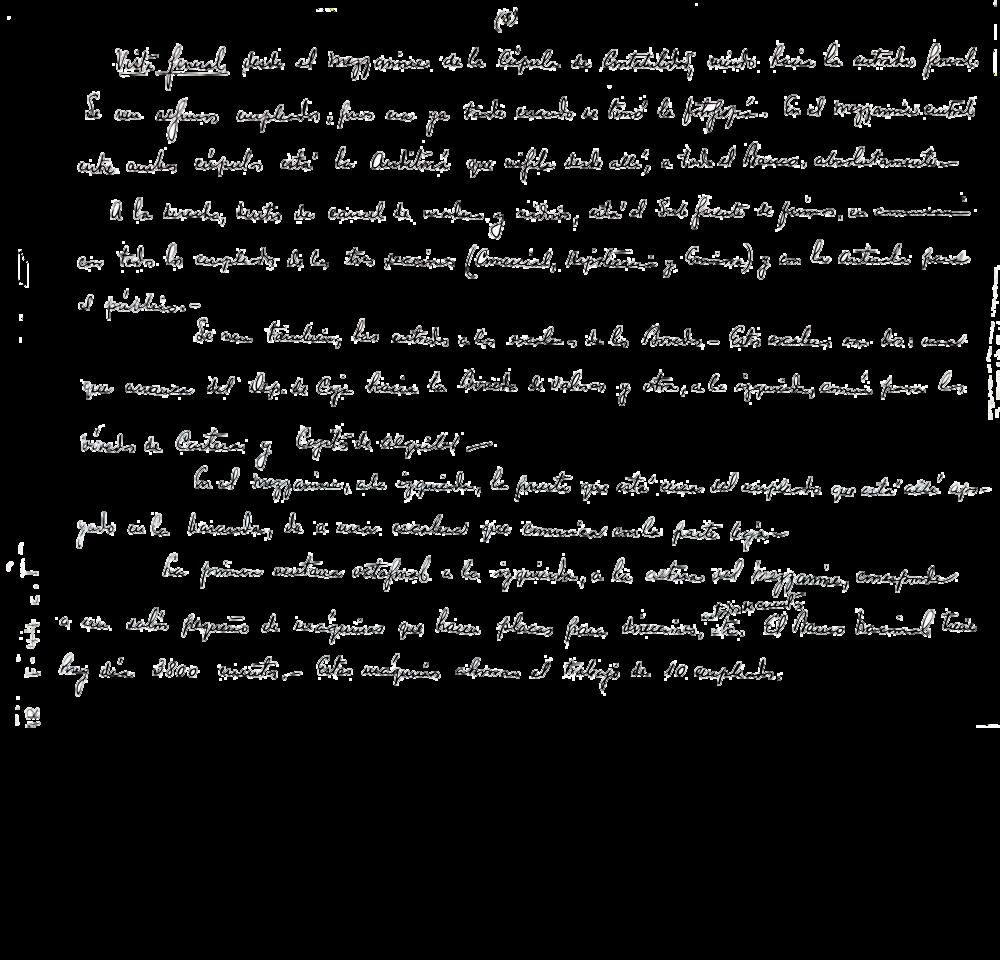 (3)
Vista general desde el mezzanine de la Cúpula de Contabilidad, mirando hacia la entrada general
Se ven algunos empleados, pues era ya tarde cuando se tomó la fotografía. En el mezzanine central
entre ambas cúpulas está la Auditoría que vigila desde allí, a todo el Banco, absolutamente
A la derecha, dentro de y está el Sub Gerente de
con todos los empleados de las tres secciones (Comercial, Hipotecaria y y con las entradas para
el público.—
Se ven también, las entradas a las escaleras de las Bóvedas.— Estas escaleras son dos: una
que arranca del Dep. de Caja hacia la Bóveda de Valores y otra, a la izquierda, para las
Bóvedas de Cartera y Cajitas de Seguridad —
En el mezzanine, a la izquierda, la puerta que está cerca del empleado que está allí apo-
yado en la baranda, da a una escalera que comunica con la puerta
La primera ventana a la izquierda, a la altura del mezzanine, corresponde
a un salón pequeño de máquinas que hacen placas para direcciones, etc. El Banco Nacional tiene
hoy día 3800 cuentas.— Estas máquinas ahorran el trabajo de 10 empleados.